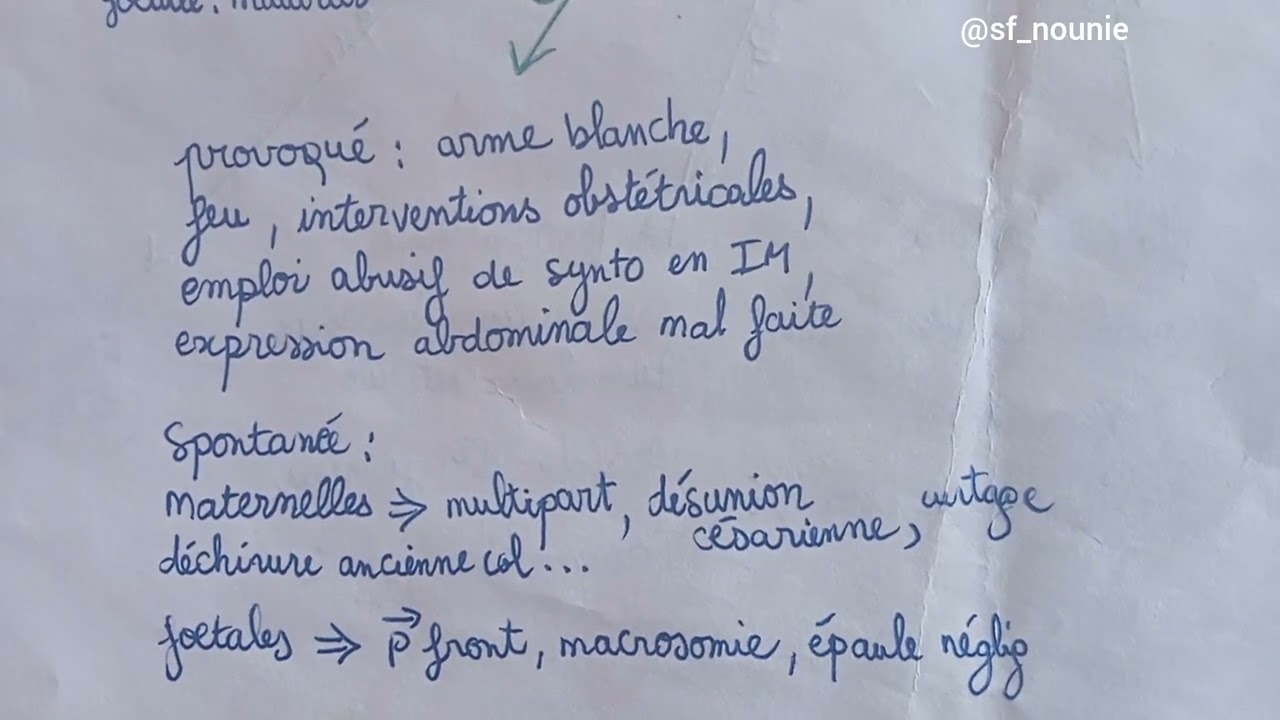 @sf_nounie
provoqué : arme blanche,
feu, interventions obstétricales,
emploi abusif de synto en IM,
expression abdominale mal faite
Spontanéé :
maternelles ⇒ multipart, désunion césarienne,
déchirure ancienne col...
foetales ⇒ p⃗ front, macrosomie, épaule néglig